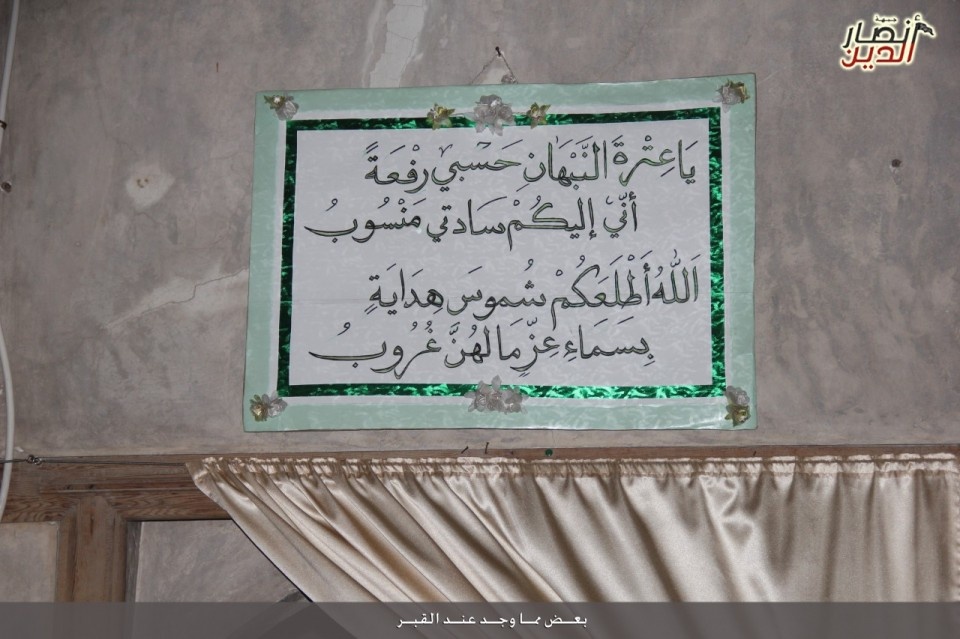 جبهة
أنصار
الدين
يَا عِتْرَةَ النَّبْهَانِ حَسْبِي رِفْعَةً
أَنّي إليكُمْ سَادَتي مَنْسُوبُ
اَللّٰهُ أَطْلَعَكُمْ شُموسَ هِدَايَةٍ
بِسَمَاءِ عِزٍّ مَا لهُنَّ غُرُوبُ
بعض مما وجد عند القبر